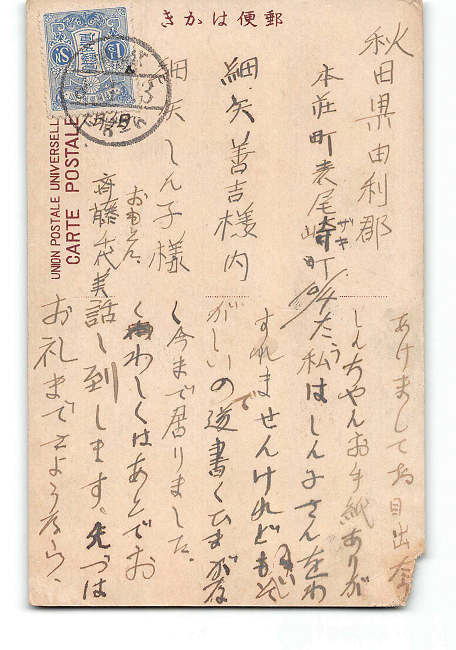 郵便はかき
UNION POSTALE UNIVERSELLE
CARTE POSTALE
秋田県由利郡
本荘町表尾崎町
ザキ
細矢善吉様内
細矢しん子様
おもとに、
斉藤千代美
10/4
あけましてお目出
しんちやんお手紙ありが
たう私はしん子さんをわ
すれませんけれどもいそ
がしいので道書くひまがな
く今まで居りました。
くわしくはあとでお
話し到します。先づは
お礼までさようなら、